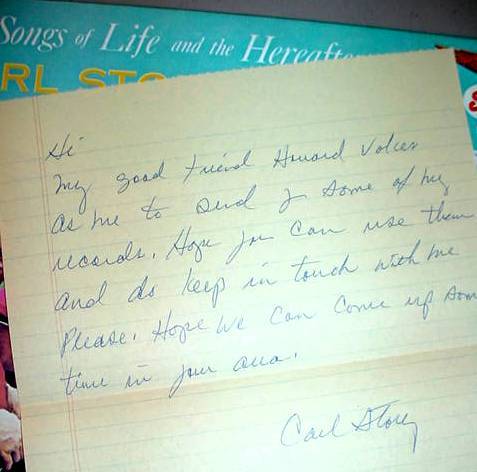 Songs of Life and the Hereafte
RL STO
Hi
My good friend Howard
as me to send y some of my
records. Hope you can use them
and do keep in touch with me
Please. Hope we can come up som
time in your area.
Carl Story